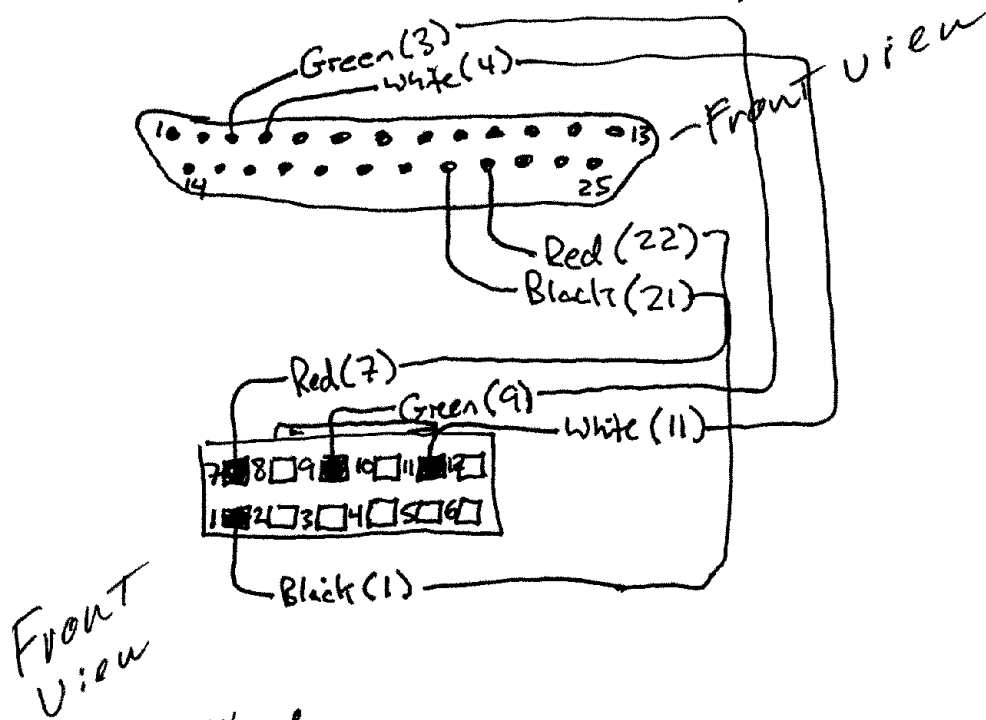 Green(3)
White(4)
Front view
1 13
14 25
Red(22)
Black(21)
Red(7)
Green(9)
White(11)
7 8 9 10 11 12
1 2 3 4 5 6
Black(1)
Front
view